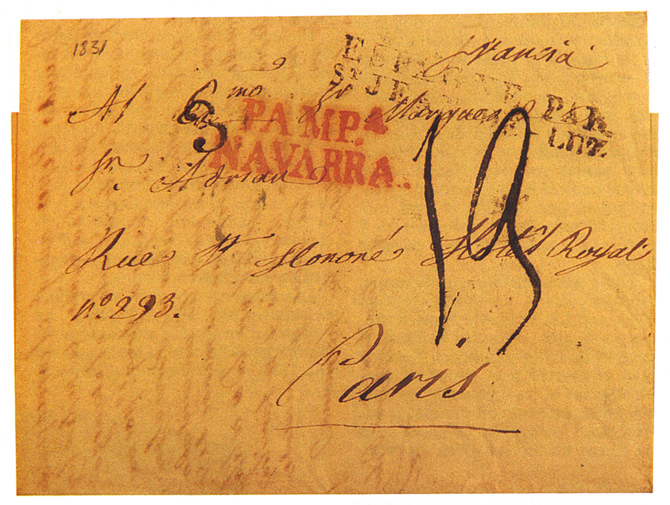 1831
Francia
ESPAGNE PAR
St JEAN LUZ
Al Exmo Sr Marques d
3
PAMP.a
NAVARRA.
Sn. Adrian
Rue St Honoré Hotel Royal
no. 293.
19
Paris